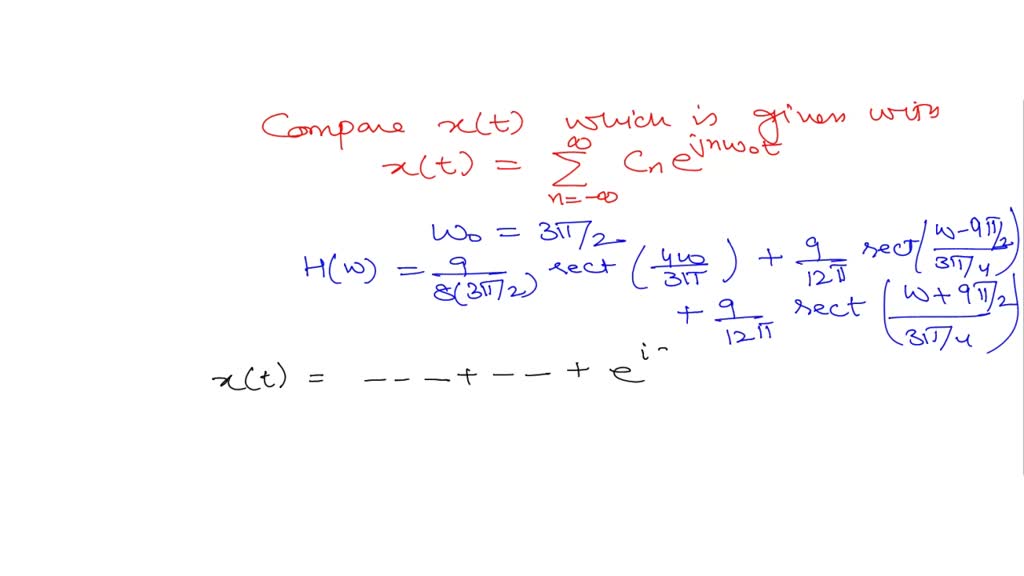 Compare x(t) which is given with
x(t) = ∞∑n=-∞ Cn e^jnω0t
ω0 = 3π/2
H(ω) = 9/8(3π/2) rect (4ω/3π) + 9/12π rect (ω-9π/2 / 3π/4)
+ 9/12π rect (ω+9π/2 / 3π/4)
x(t) = --- + -- + e^i-